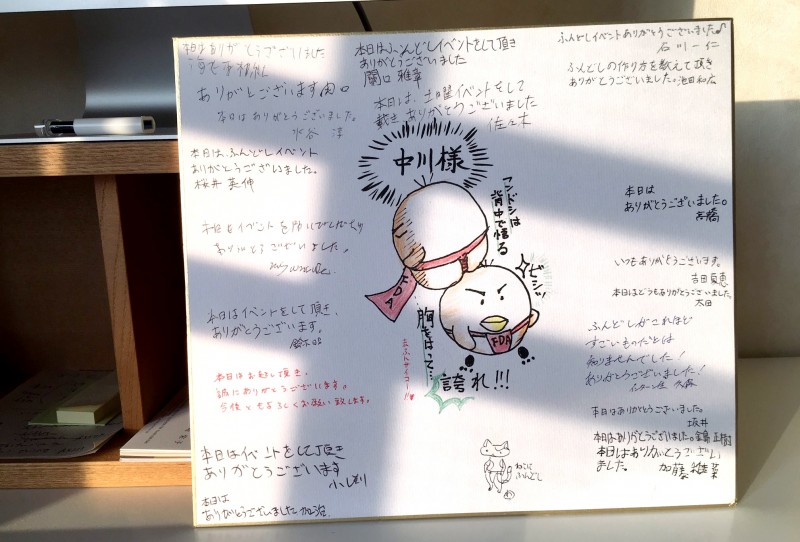 本日はありがとうございました
ありがとうございます
本日はありがとうございました。
本日は、ふんどしイベント
ありがとうございました。
桜井
ありがとうございました。
本日はイベントをして頂き、
ありがとうございます。
鈴木
本日はお越し頂き、
誠にありがとうございます。
今後ともよろしくお願い致します。
本日はイベントをして頂き
ありがとうございます
本日は
ありがとうございました
本日はふんどしイベントをして頂き
ありがとうございました
関口
本日は、土曜イベントをして
戴きありがとうございました
佐々木
中川様
フンドシは
背中で語る
FDA
ビシッ
FDA
胸をはって…
誇れ!!!
ねこに
ふんどし
ふんどしイベントありがとうございました♪
石川一仁
ふんどしの作り方を教えて頂き
ありがとうございました。池田
本日は
ありがとうございました。
高橋
いつもありがとうございます。
吉田
本日はどうもありがとうございました。
太田
ふんどしがこれほど
すごいものだとは
知りませんでした!
ありがとうございました!
本日はありがとうございました。
坂井
本日はありがとうございました。
本日はありがとうござい
ました。 加藤